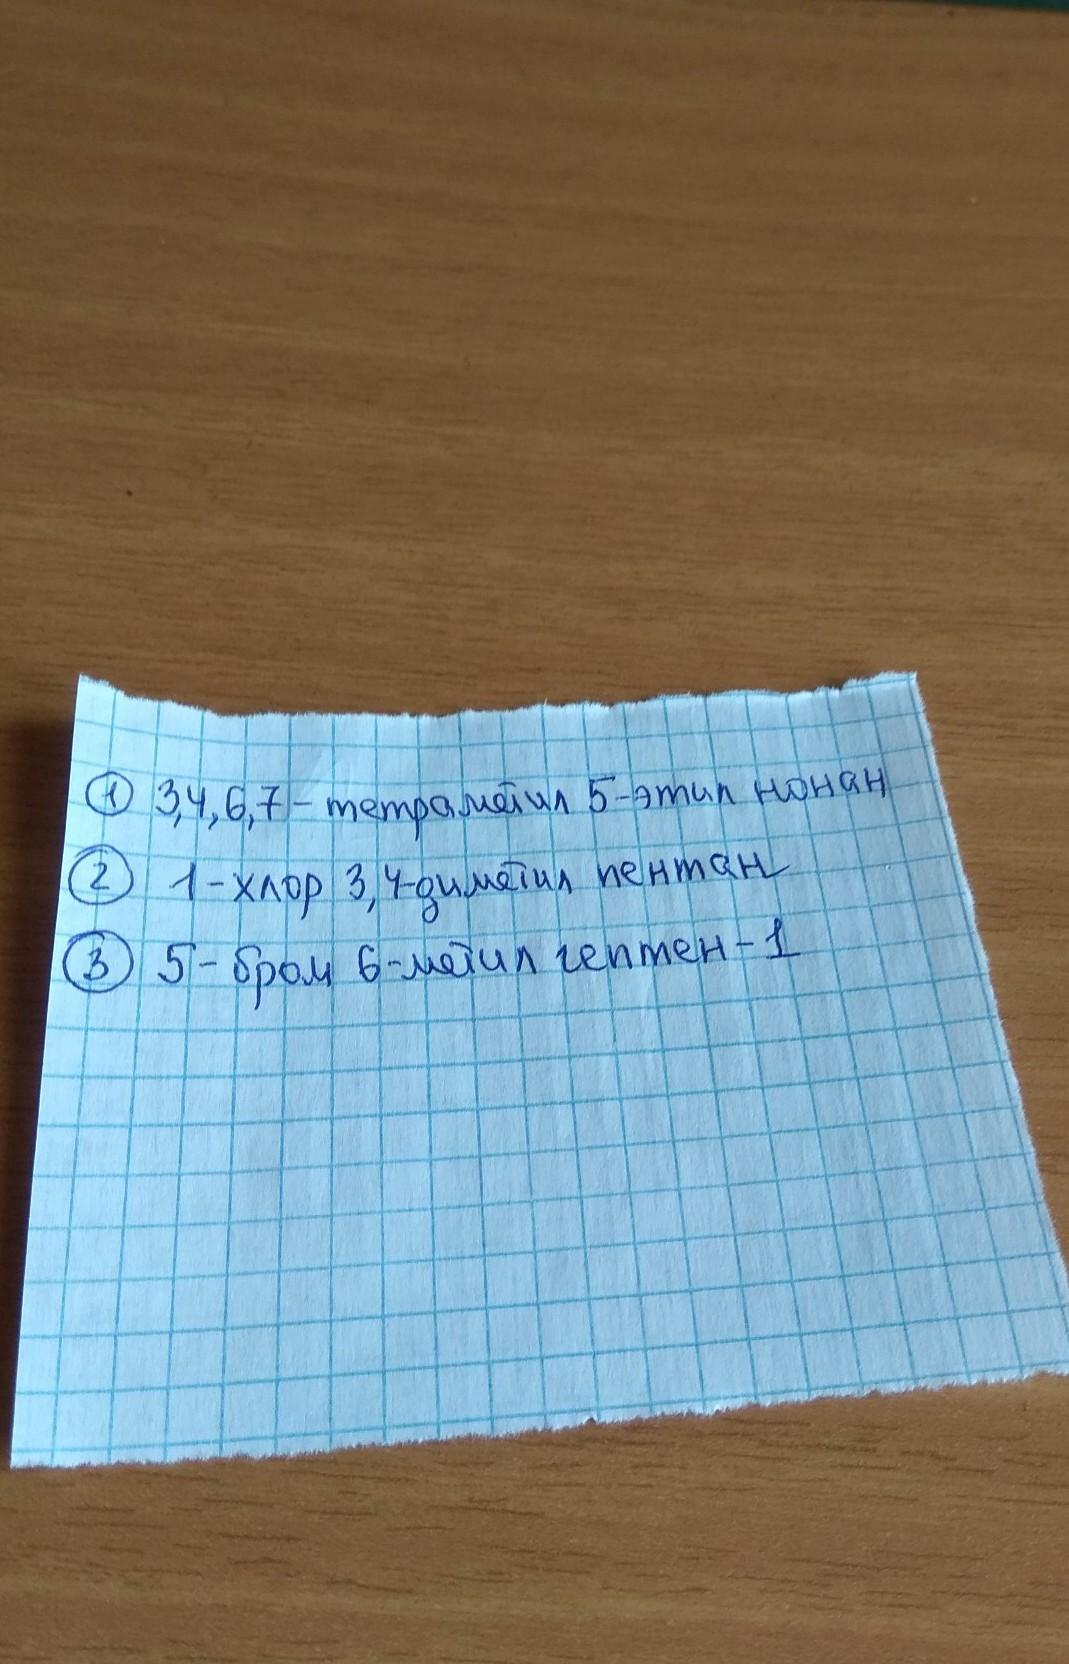 ① 3,4,6,7-тетраметил 5-этил нонан
② 1-хлор 3,4-диметил пентан
③ 5-бром 6-метил гептен-1